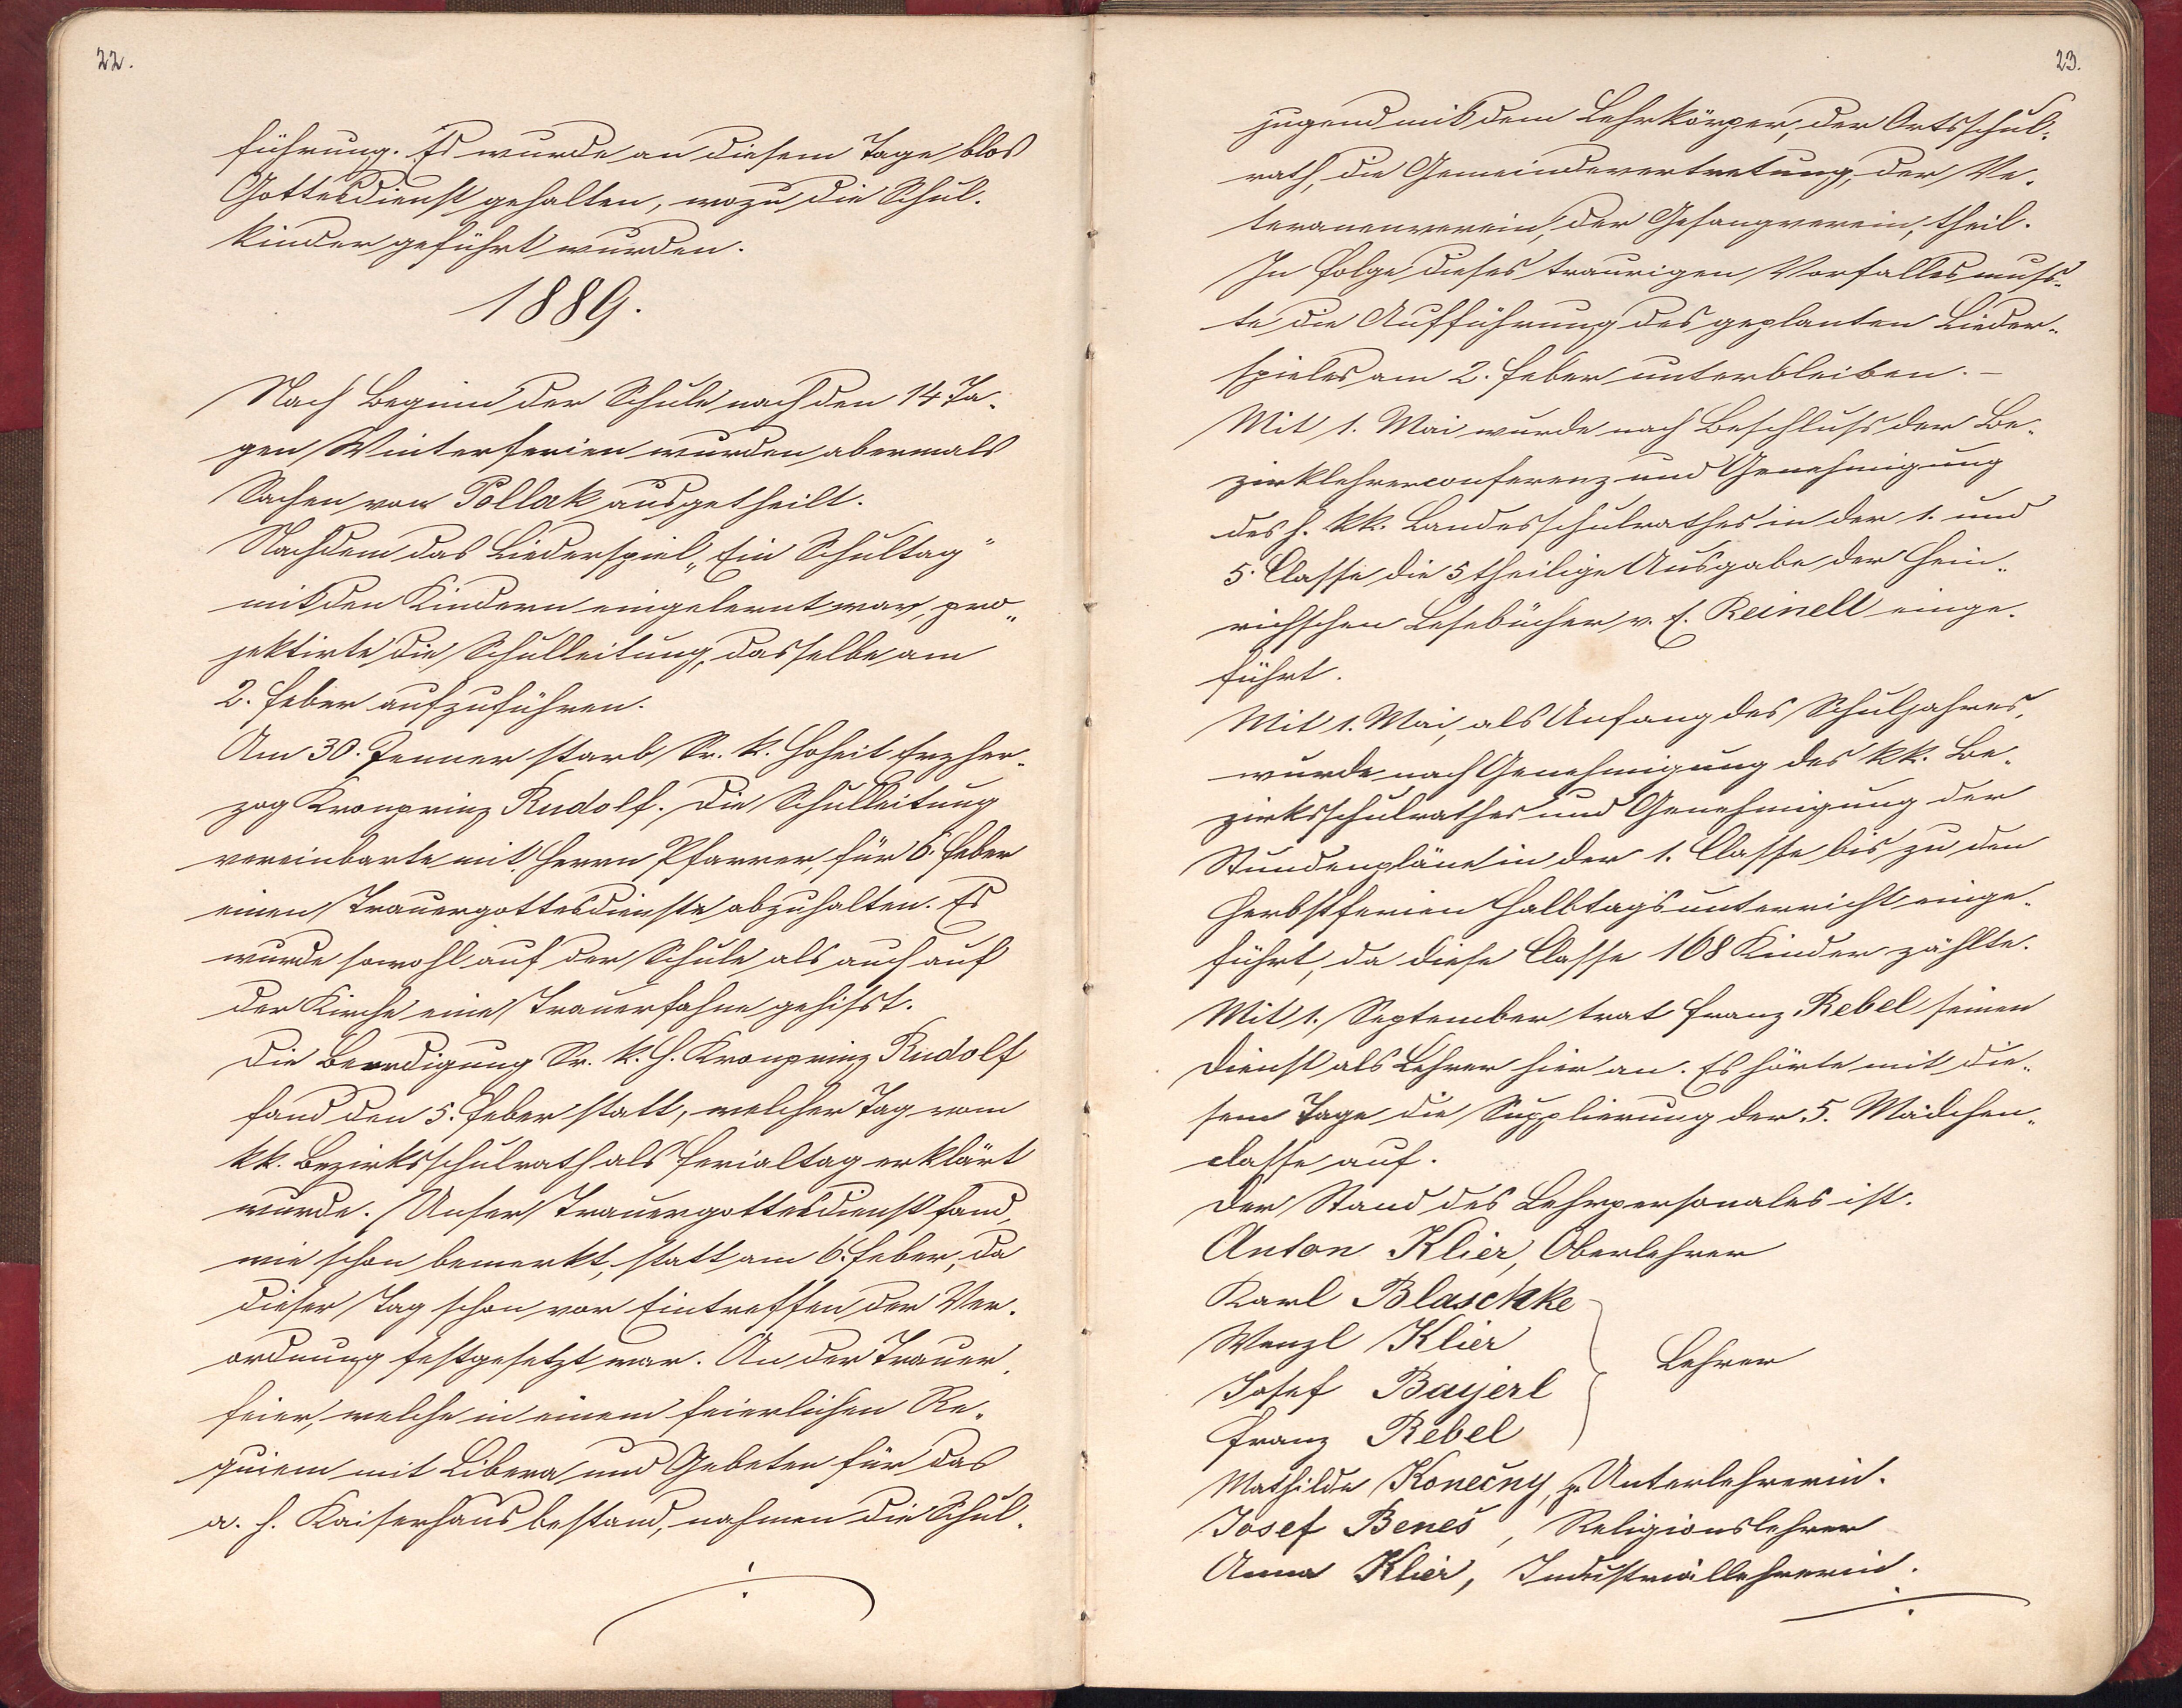 22.
führung. Es wurde an diesem Tage blos
Gottesdienst gehalten, wozu die Schul-
kinder geführt wurden.
1889.
Nach Beginn der Schule nach den 14 Ta-
gen Winterferien wurden abermals
Sachen von Pollak ausgetheilt.
Nachdem das Liederspiel „Ein Schultag"
mit den Kindern eingelernt war, pro„
jektirte die Schulleitung, dasselbe am
2. Feber aufzuführen.
Am 30. Jenner starb Sr. k. Hoheit Erzher-
zog Kronprinz Rudolf. Die Schulleitung
vereinbarte mit Herrn Pfarrer, für 6. Feber
einen Trauergottesdienste abzuhalten. Es
wurde sowohl auf der Schule als auch auf
der Kirche eine Trauerfahne gehißt.
Die Beerdigung Sr. k. H. Kronprinz Rudolf
fand den 5. Feber statt, welcher Tag vom
kk. Bezirksschulrath als Ferialtag erklärt
wurde. Unser Trauergottesdienst fand,
wie schon bemerkt, statt am 6. Feber, da
dieser Tag schon vor Eintreffen der Ver-
ordnung festgesetzt war. An der Trauer-
feier, welche in einem feierlichen Re-
quiem mit Libera und Gebeten für das
a. h. Kaiserhaus bestand, nahmen die Schul-
23.
jugend mit dem Lehrkörper, der Ortsschul-
rath, die Gemeindevertretung, der Ve-
teranenverein, der Gesangverein, theil.
In Folge dieses traurigen Vorfalles muß-
te die Aufführung des geplanten Lieder-
spieles am 2. Feber unterbleiben. –
Mit 1. Mai wurde nach Beschluß der Be-
zirklehrerconferenz und Genehmigung
des h. kk. Landesschulrathes in der 1. und
5. Classe die 5theilige Ausgabe der Hein-
richschen Lesebücher v. E. Reinelt einge-
führt.
Mit 1. Mai, als Anfang des Schuljahres,
wurde nach Genehmigung des kk. Be-
zirksschulrathes und Genehmigung der
Stundenpläne in der 1. Classe bis zu den
Herbstferien Halbtagsunterricht einge-
führt, da diese Classe 108 Kinder zählte.
Mit 1. September trat Franz Rebel seinen
Dienst als Lehrer hier an. Es hörte mit die-
sem Tage die Supplierung der 5. Mädchen-
classe auf.
Der Stand des Lehrpersonales ist.
Anton Klier, Oberlehrer
Karl Blaschke
Wenzl Klier
Lehrer
Josef Bayerl
Franz Rebel
Mathilde Konečny, Unterlehrerin.
Josef Beneš, Religionslehrer
Anna Klier, Industriallehrerin.